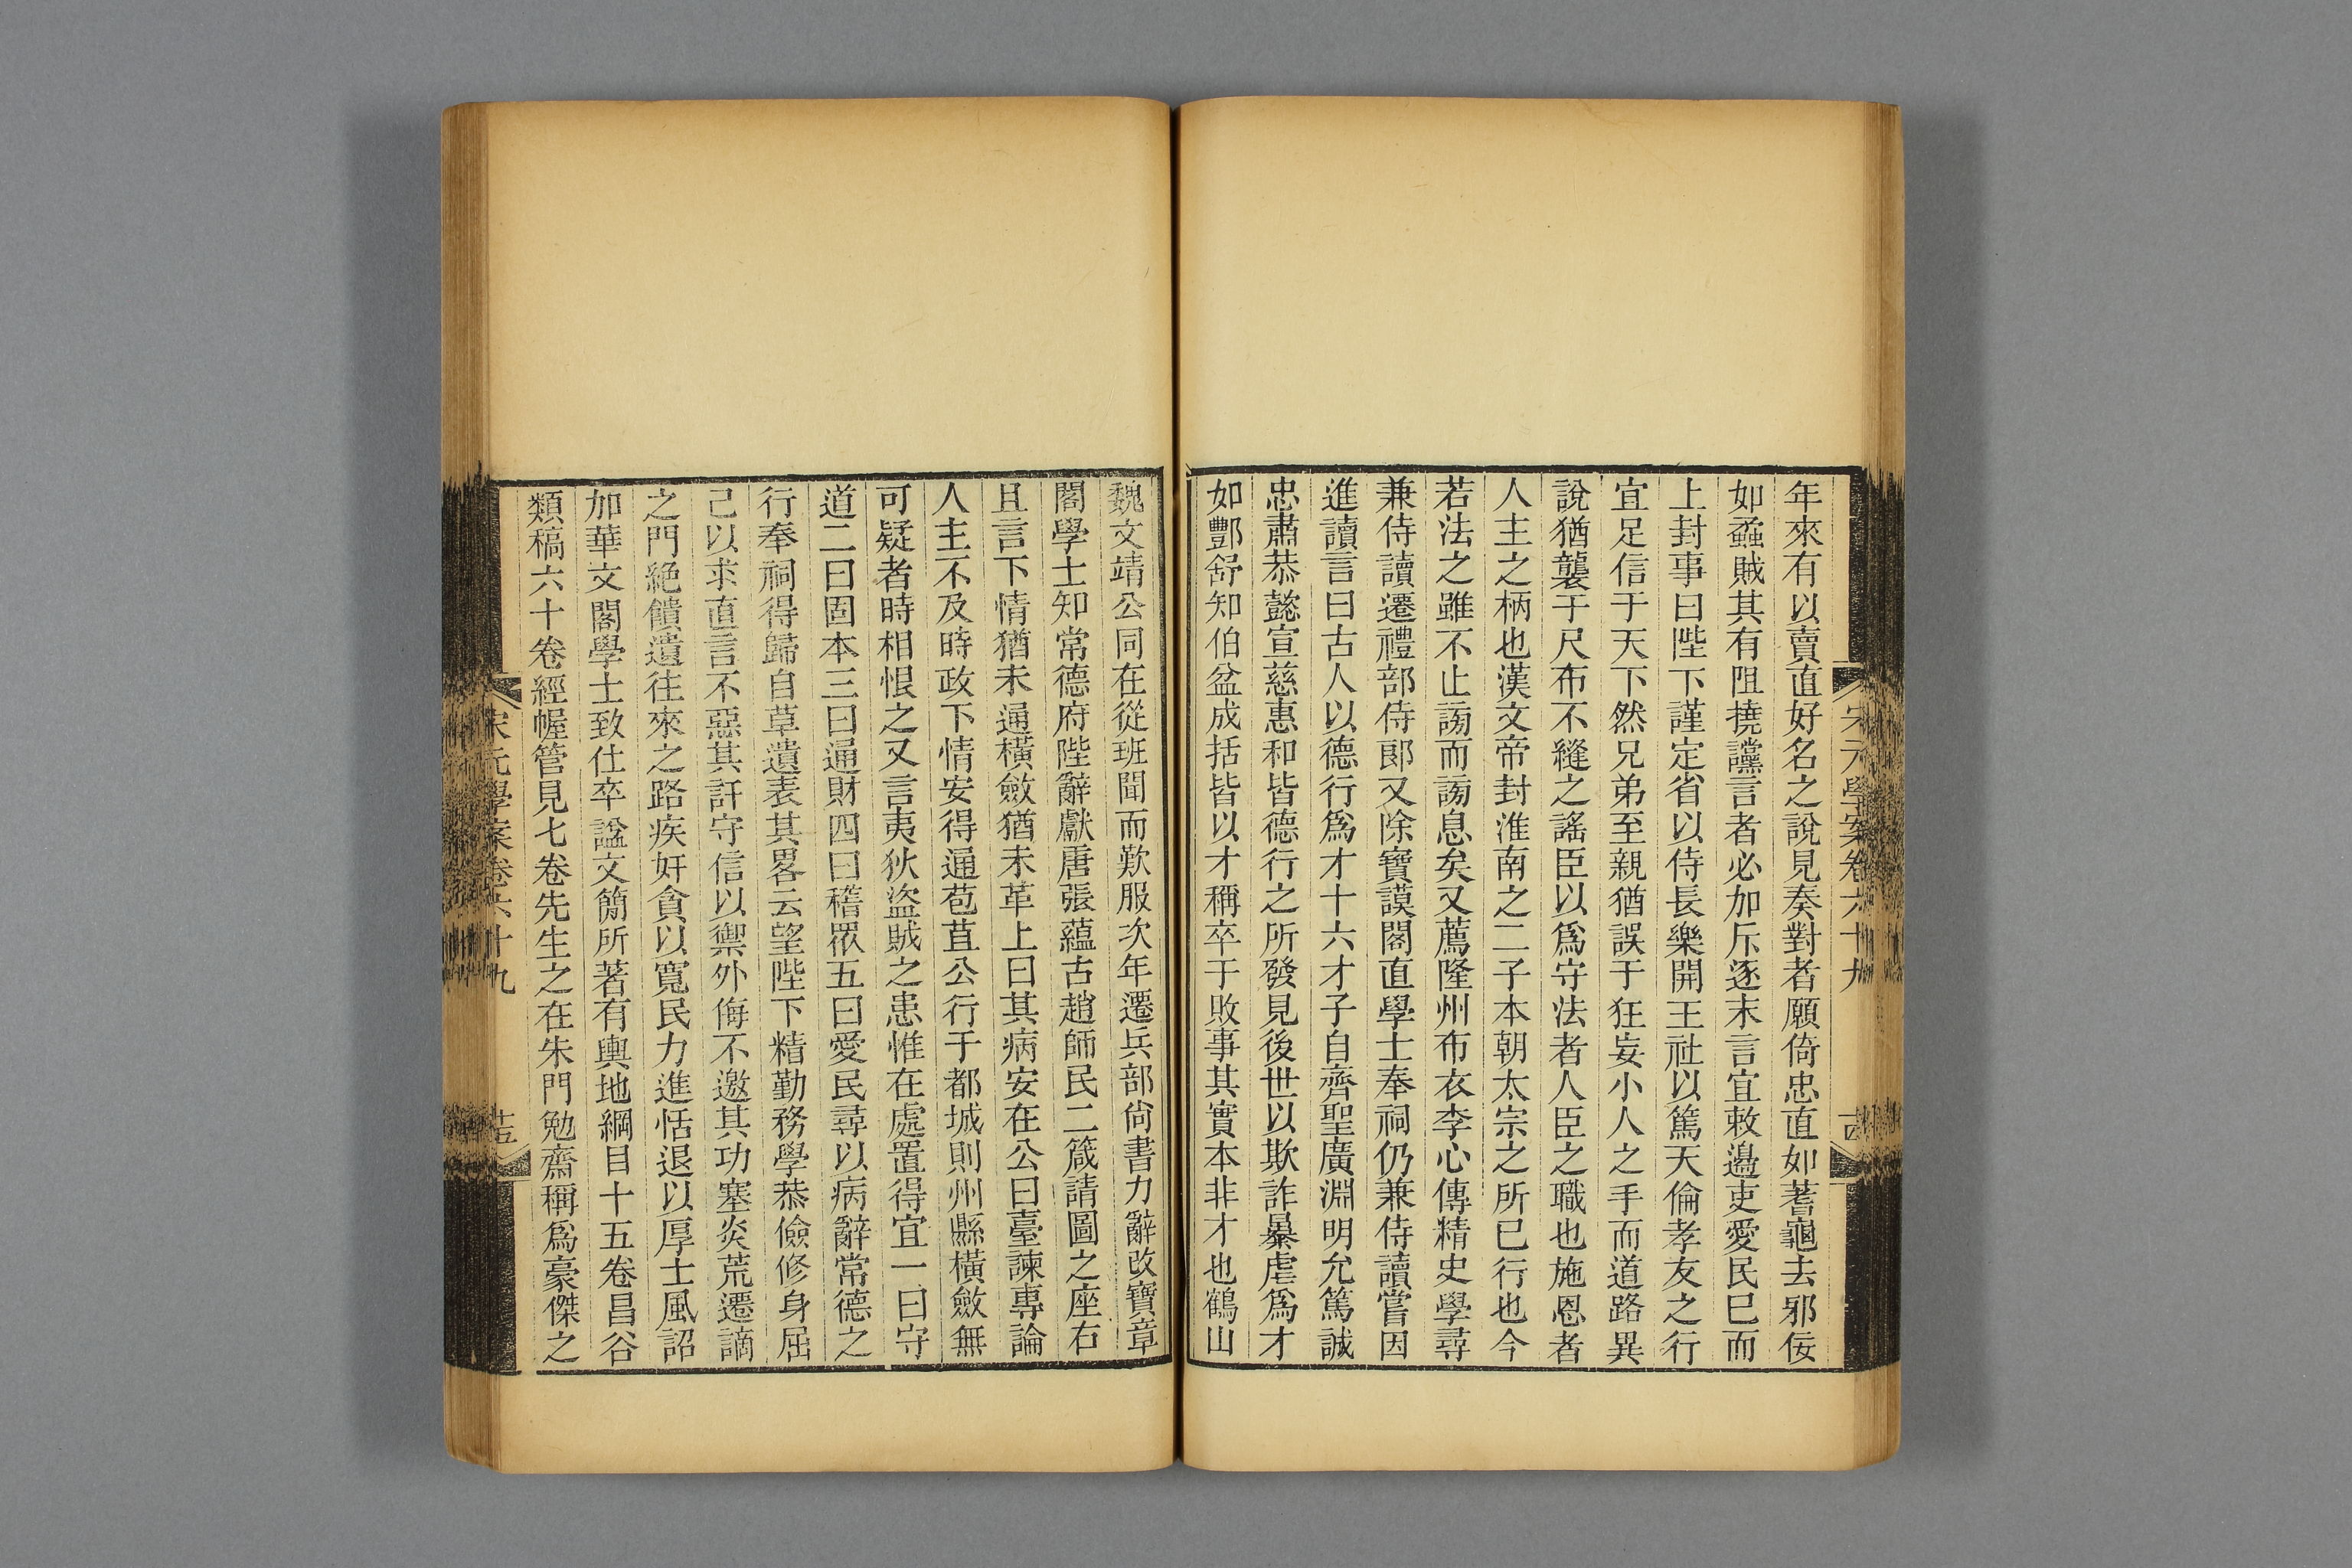 年來有以賣直好名之說見奏對者願倚忠直如蓍龜去邪佞
如蟊賊其有阻撓讜言者必加斥逐末言宜敕邊吏愛民已而
上封事曰陛下謹定省以侍長樂開王社以篤天倫孝友之行
宜足信于天下然兄弟至親猶誤于狂妄小人之手而道路異
說猶襲于尺布不縫之謠臣以爲守法者人臣之職也施恩者
人主之柄也漢文帝封淮南之二子本朝太宗之所已行也今
若法之雖不止謗而謗息矣又薦隆州布衣李心傳精史學尋
兼侍讀遷禮部侍郞又除寶謨閣直學士奉祠仍兼侍讀嘗因
進讀言曰古人以德行爲才十六才子自齊聖廣淵明允篤誠
忠肅恭懿宣慈惠和皆德行之所發見後世以欺詐暴虐爲才
如酆舒知伯盆成括皆以才稱卒于敗事其實本非才也鶴山
宋元學案卷六十九
魏文靖公同在從班聞而歎服次年遷兵部尙書力辭改寶章
閣學士知常德府陛辭獻唐張蘊古趙師民二箴請圖之座右
且言下情猶未通橫斂猶未革上曰其病安在公曰臺諫專論
人主不及時政下情安得通苞苴公行于都城則州縣橫斂無
可疑者時相恨之又言夷狄盜賊之患惟在處置得宜一曰守
道二曰固本三曰通財四曰稽眾五曰愛民尋以病辭常德之
行奉祠得歸自草遺表其畧云望陛下精勤務學恭儉修身屈
己以求直言不惡其訐守信以禦外侮不邀其功塞炎荒遷謫
之門絕饋遺往來之路疾奸貪以寬民力進恬退以厚士風詔
加華文閣學士致仕卒諡文簡所著有輿地綱目十五卷昌谷
類稿六十卷經幄管見七卷先生之在朱門勉齋稱爲豪傑之
宋元學案卷六十九